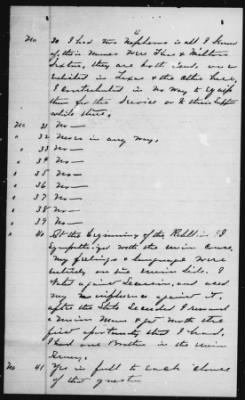 6
No 30 I had two Nephews is all I know
of, their names were Thos & Milton
they are both dead, one
enlisted in Texas & the other here,
I contributed in no way to equip
them for the service or to them
while there.
No 31 No —
" 32 Never in any way.
" 33 No —
" 34 No —
" 35 No —
" 36 No —
" 37 No —
" 38 No —
" 39 No —
" 40 At the beginning of the Rebellion I
sympathized with the union cause,
my feelings & language were
entirely on the union side. I
voted against Secession, and used
my influence against it,
after the State Seceded I remained
a Union man & got north the
first opportunity that I had.
I had one Brother in the union
Army.
No 41 Yes in full to each clause
of this question